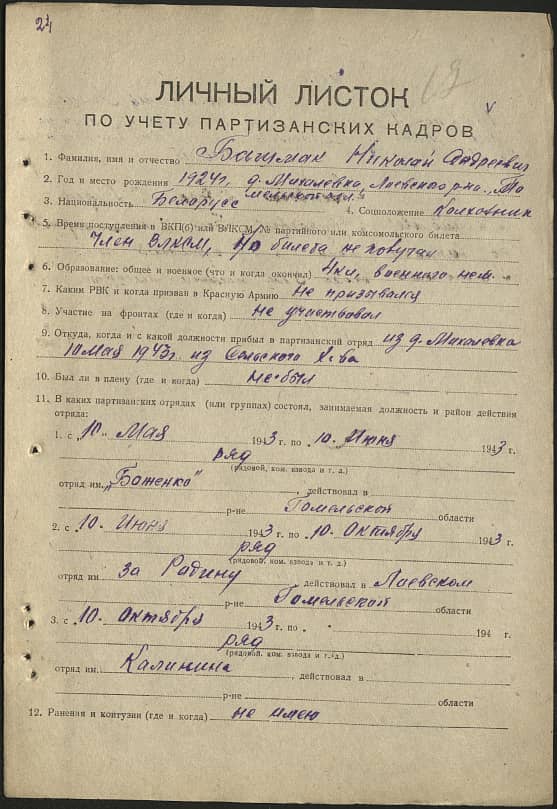 24
19
ЛИЧНЫЙ ЛИСТОК
ПО УЧЕТУ ПАРТИЗАНСКИХ КАДРОВ
1. Фамилия, имя и отчество Николай Андреевич
2. Год и место рождения 1924 г. д. Михалевка, Лоевского р-на,
3. Национальность Беларусс 4. Соцположение Колхозник
5. Время поступления в ВКП(б) или ВЛКСМ, № партийного или комсомольского билета
Член ВЛКСМ, билета не получал
6. Образование: общее и военное (что и когда окончил) 4 кл, военного нет.
7. Каким РВК и когда призван в Красную Армию не призывался
8. Участие на фронтах (где и когда) не участвовал
9. Откуда, когда и с какой должности прибыл в партизанский отряд из д. Михалевка
10 мая 1943 г. из Сельского Х-ва
10. Был ли в плену (где и когда) не был
11. В каких партизанских отрядах (или группах) состоял, занимаемая должность и район действия
отряда:
1. с 10. Мая 1943 г. по 10. Июня 1943 г.
ряд
(рядовой, ком. взвода и т. д.)
отряд им. „Боженко" , действовал в
р-не Гомельской области
2. с 10. Июня 1943 г. по 10. Октября 1943 г.
ряд
(рядовой, ком. взвода и т. д.)
отряд им. За Родину , действовал в Лоевском
р-не Гомельской области
3. с 10. Октября 1943 г. по 194 г.
ряд
(рядовой, ком. взвода и т. д.)
отряд им. Калинина , действовал в
р-не области
12. Ранения и контузии (где и когда) не имею